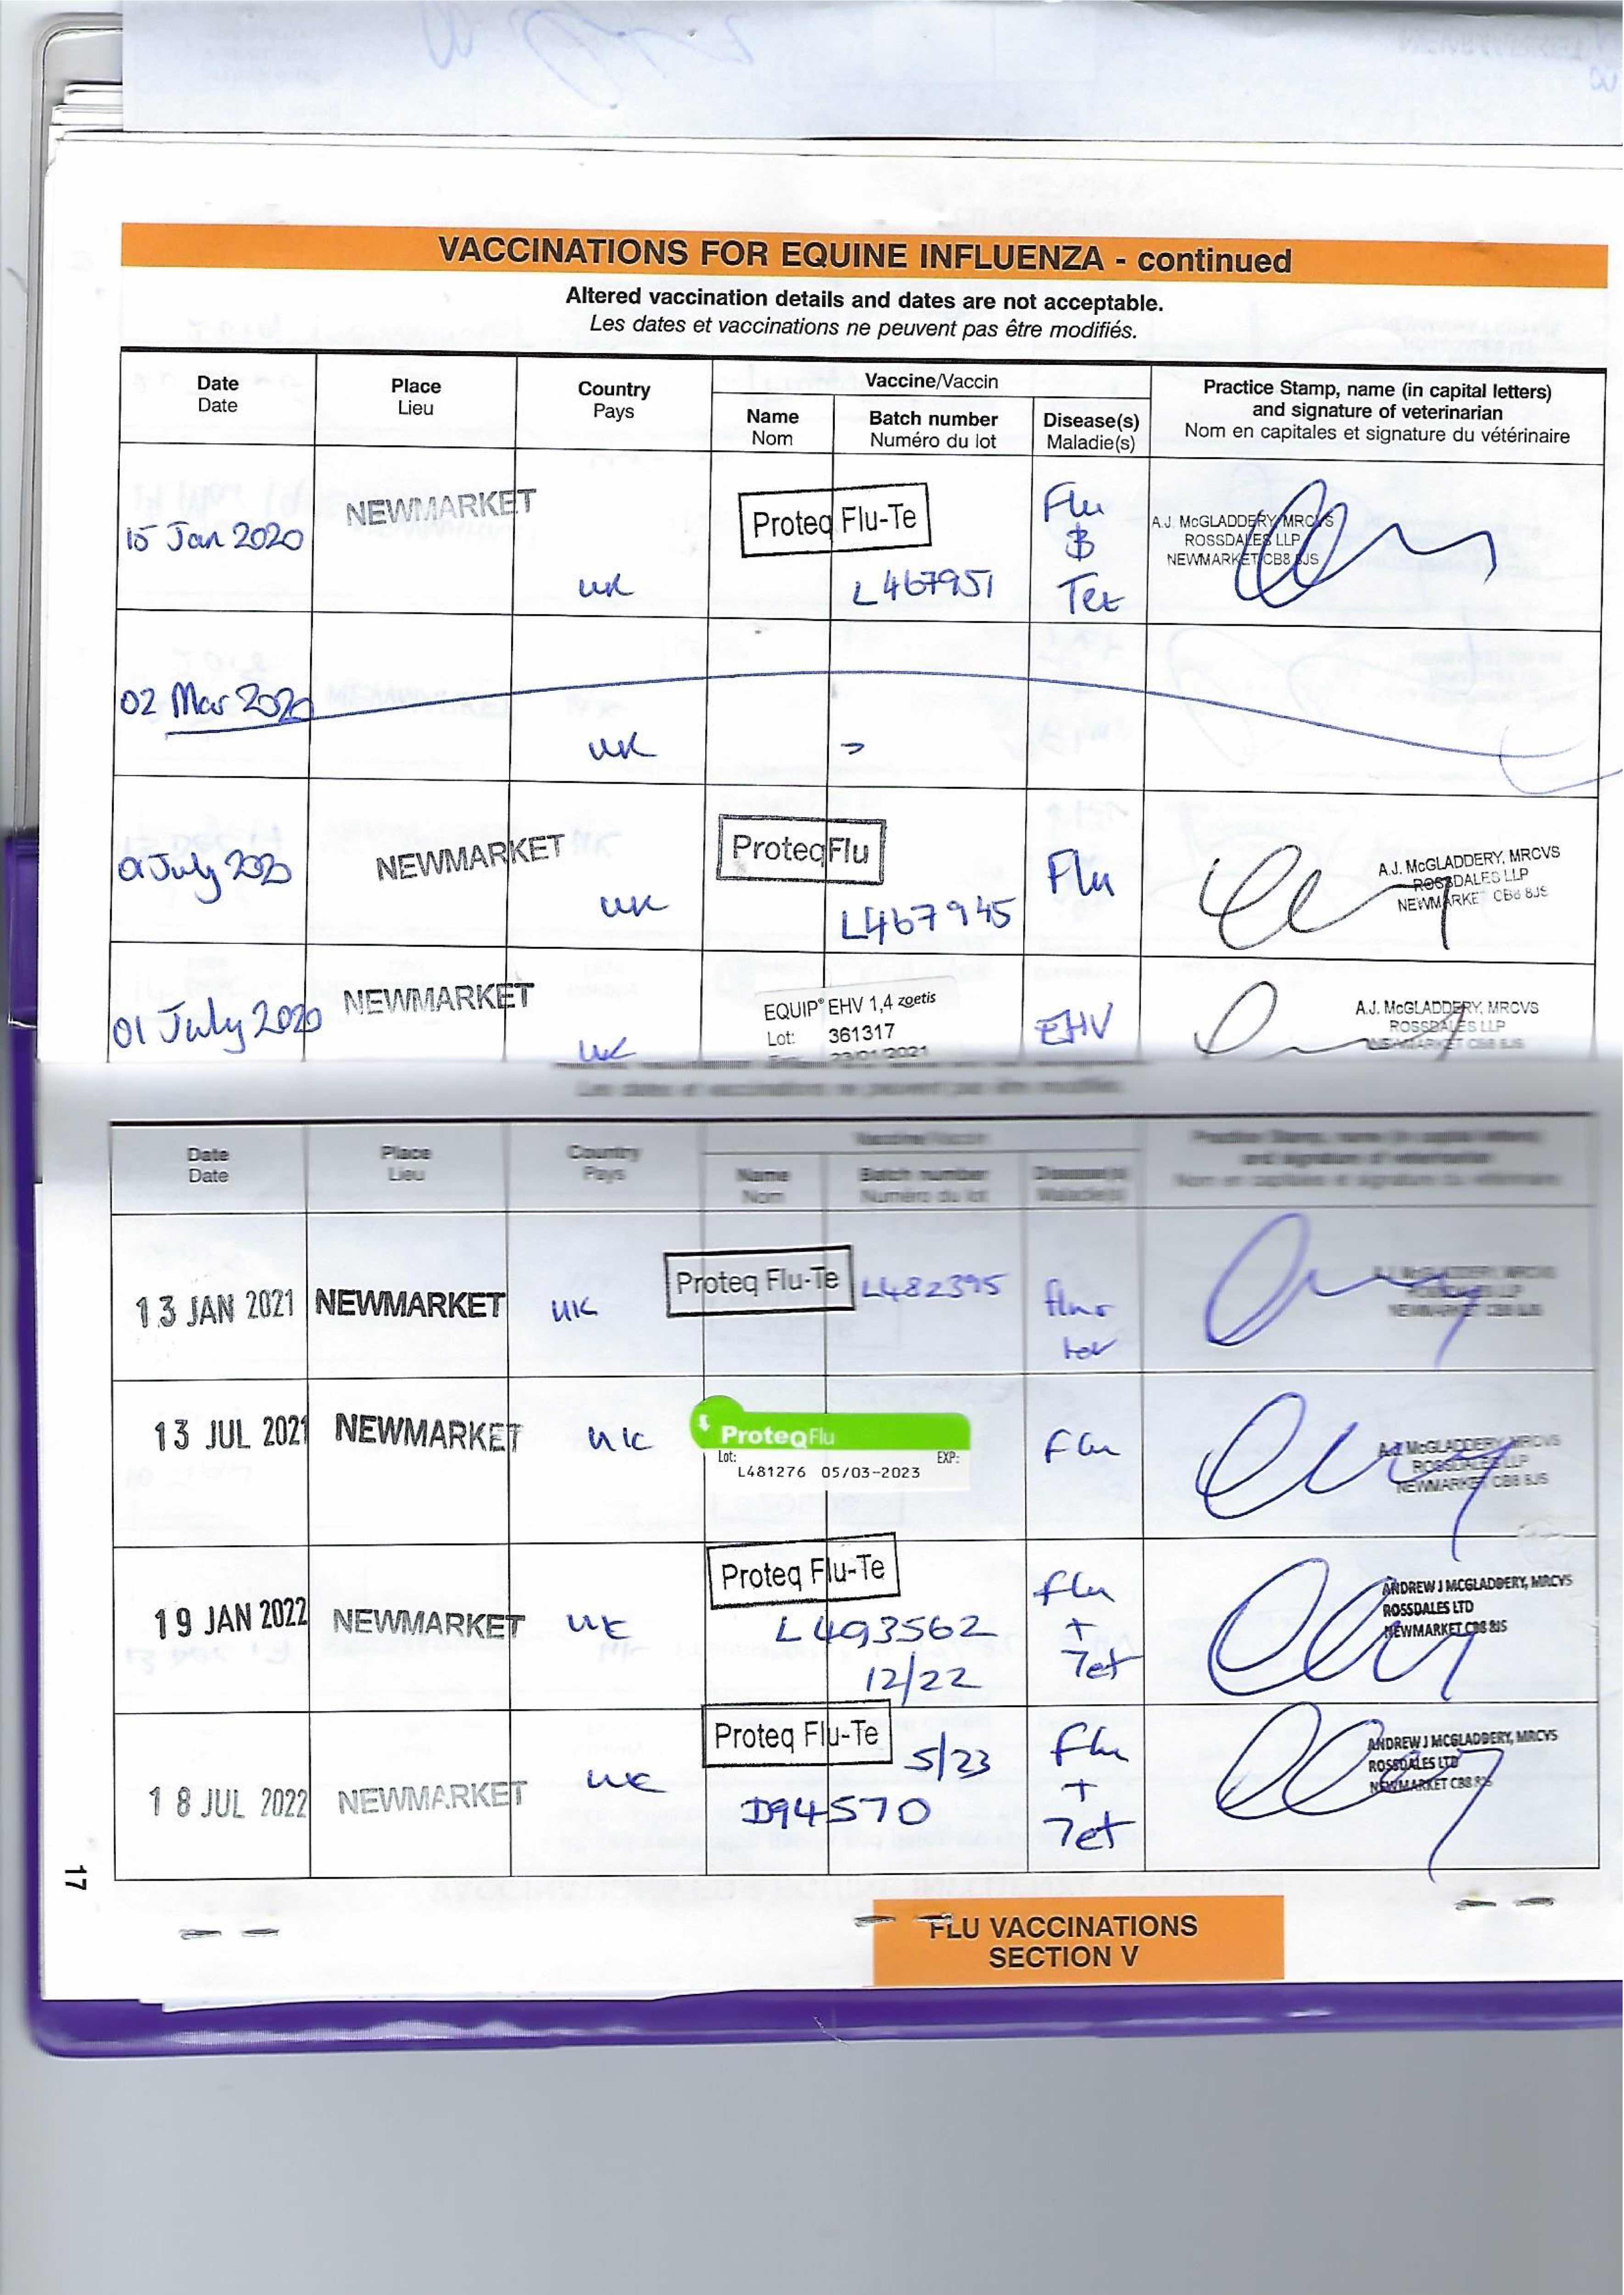 VACCINATIONS FOR EQUINE INFLUENZA - continued
Altered vaccination details and dates are not acceptable.
Les dates et vaccinations ne peuvent pas être modifiés.
Date
Date
Place
Lieu
Country
Pays
Vaccine/Vaccin
Name
Nom
Batch number
Numéro du lot
Disease(s)
Maladie(s)
Practice Stamp, name (in capital letters)
and signature of veterinarian
Nom en capitales et signature du vétérinaire
15 Jan 2020
NEWMARKET
UK
Proteq Flu-Te
L467951
Flu
&
Tet
A.J. McGLADDERY MRCVS
ROSSDALES LLP
NEWMARKET CB8 8JS
02 Mar 2020
UK
01 July 2020
NEWMARKET
UK
ProteqFlu
L467945
Flu
A.J. McGLADDERY, MRCVS
ROSSDALES LLP
NEWMARKET CB8 8JS
01 July 2020
NEWMARKET
UK
EQUIP® EHV 1,4 zoetis
Lot: 361317
23/01/2021
EHV
A.J. McGLADDERY, MRCVS
ROSSDALES LLP
NEWMARKET CB8 8JS
Les dates et vaccinations ne peuvent pas être modifiés.
Date
Date
Place
Lieu
Country
Pays
Vaccine/Vaccin
Name
Nom
Batch number
Numéro du lot
Disease(s)
Maladie(s)
Practice Stamp, name (in capital letters)
and signature of veterinarian
Nom en capitales et signature du vétérinaire
13 JAN 2021
NEWMARKET
UK
Proteq Flu-Te
L482395
flu +
tet
A.J. McGLADDERY, MRCVS
ROSSDALES LLP
NEWMARKET CB8 8JS
13 JUL 2021
NEWMARKET
UK
ProteqFlu
Lot: EXP:
L481276 05/03-2023
Flu
A.J. McGLADDERY, MRCVS
ROSSDALES LLP
NEWMARKET CB8 8JS
19 JAN 2022
NEWMARKET
UK
Proteq Flu-Te
L493562
12/22
flu
+
Tet
ANDREW J MCGLADDERY, MRCVS
ROSSDALES LTD
NEWMARKET CB8 8JS
18 JUL 2022
NEWMARKET
UK
Proteq Flu-Te
5/23
D94570
Flu
+
Tet
ANDREW J MCGLADDERY, MRCVS
ROSSDALES LTD
NEWMARKET CB8 8JS
17
FLU VACCINATIONS
SECTION V